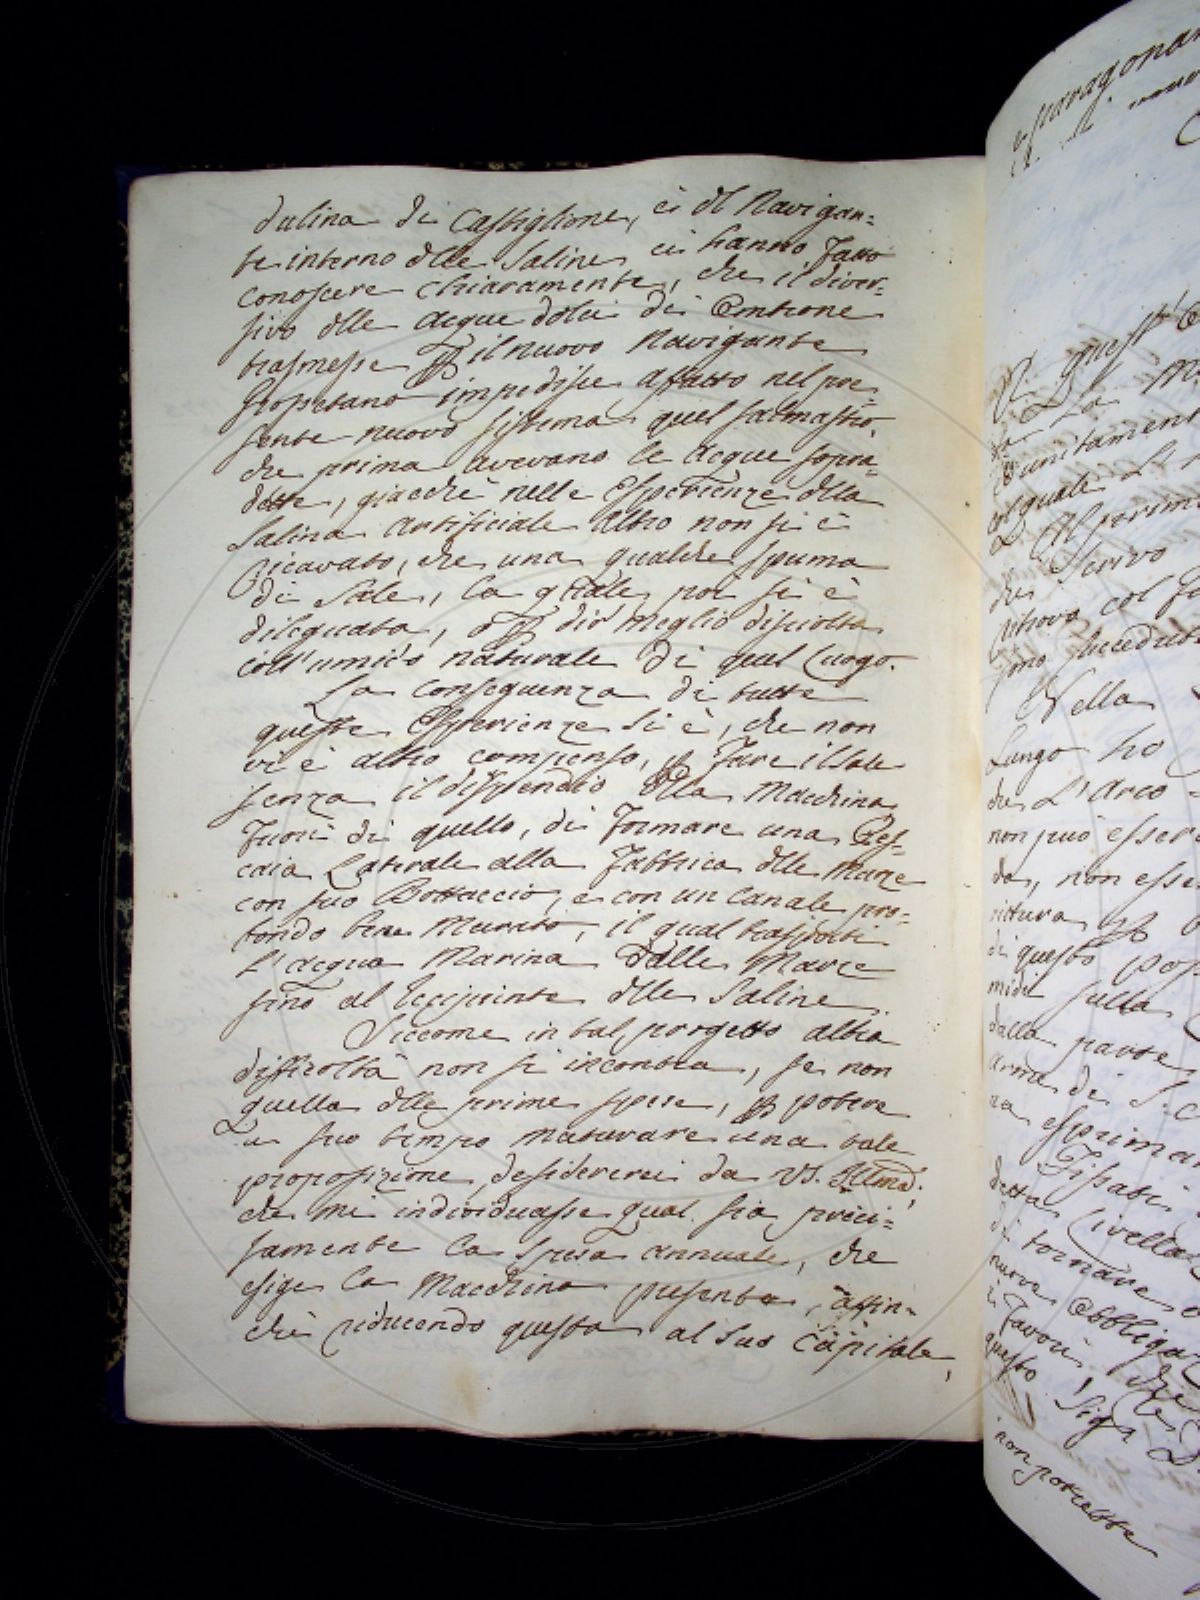 dulina di Castiglione, ci dl Navigan=
te interno dlle Saline ci hanno fatto
conoscere chiaramente, che il diver=
sivo dlle acque dolci di
trasmesse p il nuovo Navigante
Grossetano impedisce affatto nel pre=
sente nuovo sistema quel salmastro,
che prima avevano le acque sopra=
dette, giacchè nelle Esperienze della
Salina artificiale altro non si è
ricavato, che una qualche spuma
di Sale, la quale poi si è
dileguata, o p dir meglio disciolta
coll'umido naturale di quel luogo.
La conseguenza di tutte
queste Esperienze si è, che non
vi è altro compenso, p fare il sale
senza il dispendio della Macchina
fuori di quello, di formare una Pes=
caia Laterale alla fabbrica dlle Marze
con suo Bottaccio, e con un Canale pro=
fondo bene Murato, il qual trasporti
L'acqua Marina dalle Marze
fino al recipiente dlle Saline.
Siccome in tal progetto altra
difficoltà non si incontra, se non
quella dlle prime spese, p potere
a suo tempo maturare una tale
proposizione, desidererei da VS. Illma,
che mi individuasse qual sia preci=
samente la spesa annuale, che
esige la Macchina presente, affin=
chè riducendo questa al suo Capitale,
paragonar
La
unitament
quale
Scrivo
ritrovo col
sono
Nella
Lungo ho
che L'Arco
non può esser
da, non esse
di questo
sulla
dalla parte
arme di S. C
esprima
Fissati
detta livella
di tornare
nuove obbliga
favori, che
questo Sig. D.
non potrebbe